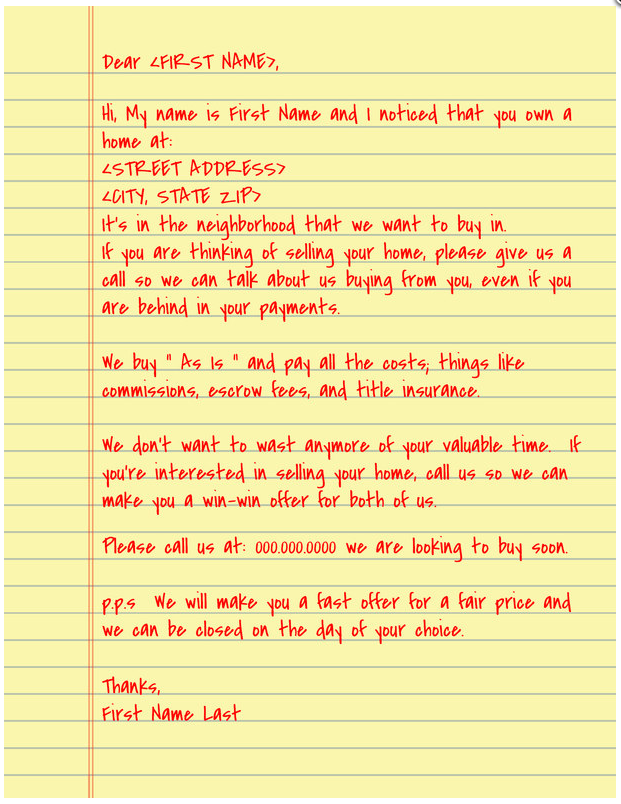 Dear <FIRST NAME>,
Hi, My name is First Name and I noticed that you own a
home at:
<STREET ADDRESS>
<CITY, STATE ZIP>
It's in the neighborhood that we want to buy in.
If you are thinking of selling your home, please give us a
call so we can talk about us buying from you, even if you
are behind in your payments.
We buy " As Is " and pay all the costs; things like
commissions, escrow fees, and title insurance.
We don't want to wast anymore of your valuable time. If
you're interested in selling your home, call us so we can
make you a win-win offer for both of us.
Please call us at: 000.000.0000 we are looking to buy soon.
p.p.s We will make you a fast offer for a fair price and
we can be closed on the day of your choice.
Thanks,
First Name Last